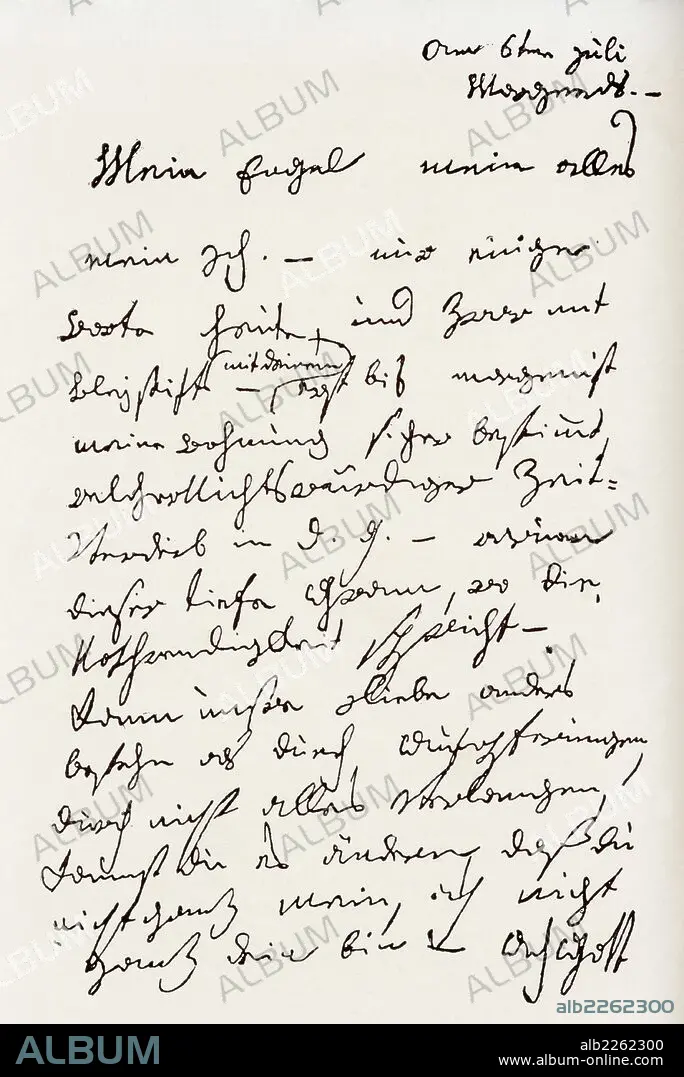 am 6ten juli
Morgends. –
Mein Engel mein alles
mein Ich. – nur einige
Worte heute, und zwar mit
Bleystift – (mit deinem) erst bis morgen ist
meine wohnung sicher bestimmt,
welcher Nichtswürdiger Zeit=
Verderb in d. g. – warum
dieser tiefe Gram, wo die
Nothwendigkeit spricht –
Kann unsre Liebe anders
bestehn als durch Aufopferungen,
durch nicht alles verlangen,
kannst du es ändern, daß du
nicht ganz mein, ich nicht
ganz dein bin – Ach Gott
ALBUM
alb2262300
ALBUM
alb2262300
www.album-online.com